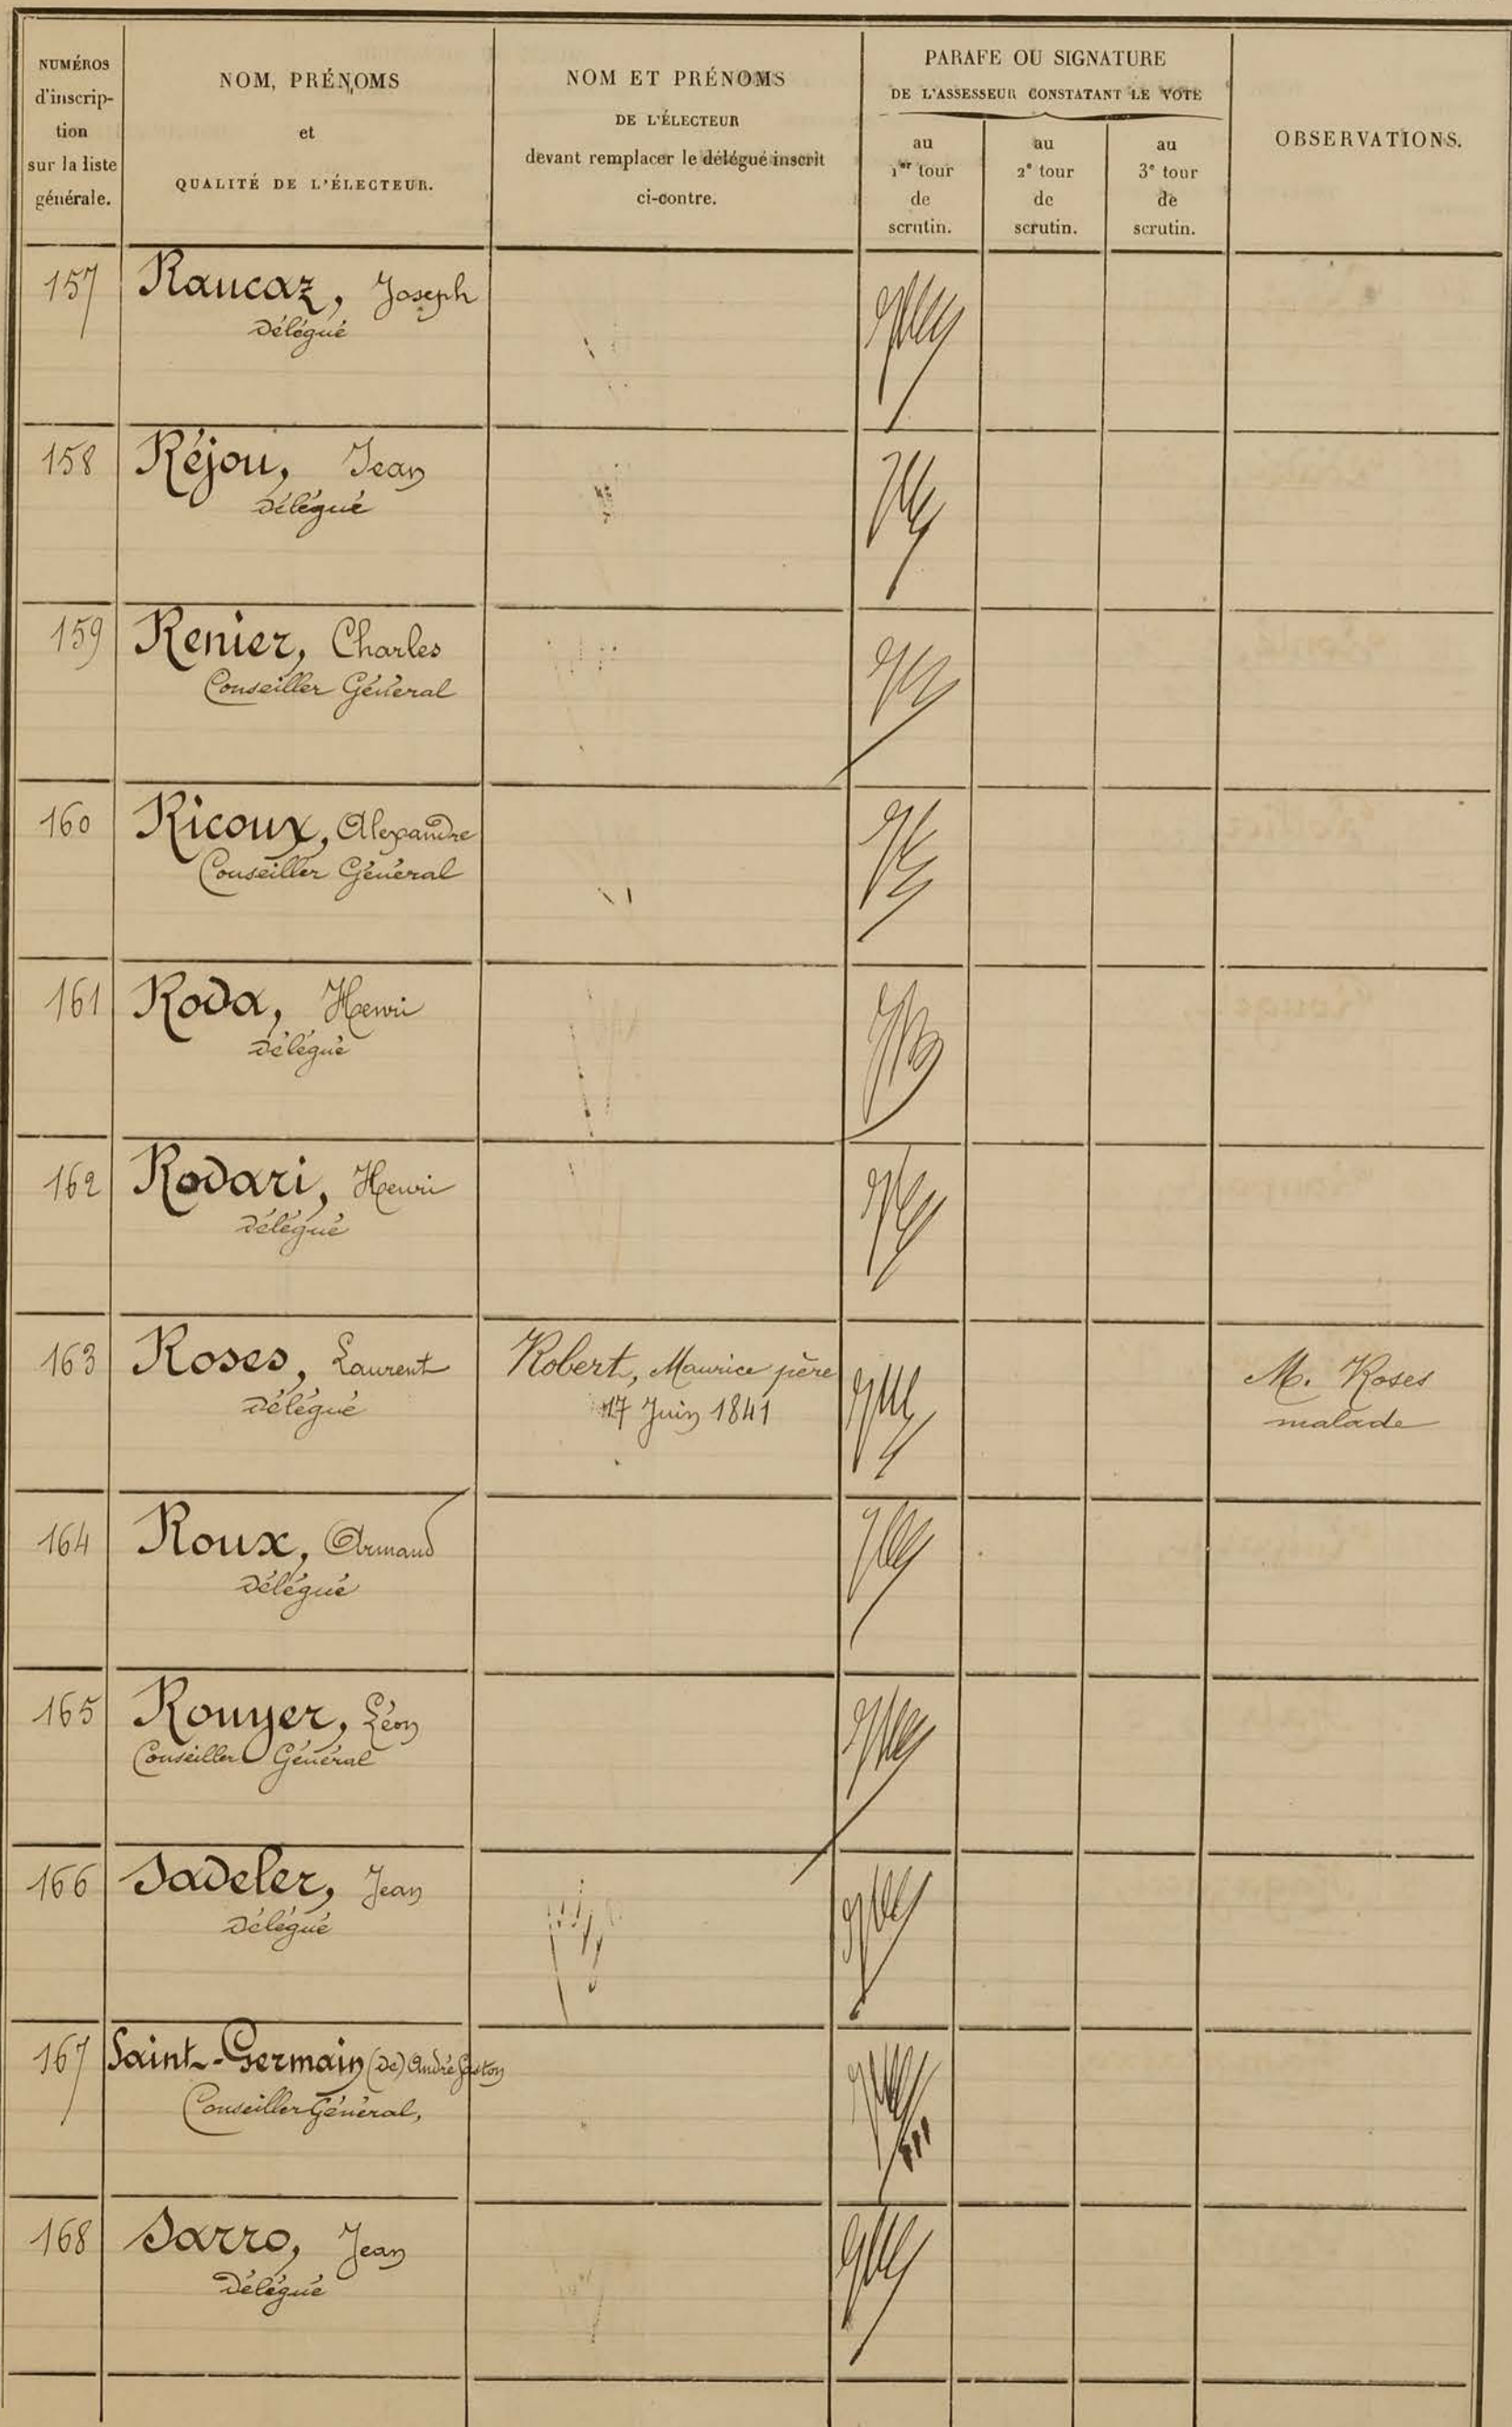 NUMÉROS
d'inscrip-
tion
sur la liste
générale.
NOM, PRÉNOMS
et
QUALITÉ DE L'ÉLECTEUR.
NOM ET PRÉNOMS
DE L'ÉLECTEUR
devant remplacer le délégué inscrit
ci-contre.
PARAFE OU SIGNATURE
DE L'ASSESSEUR CONSTATANT LE VOTE
au
1er tour
de
scrutin.
au
2e tour
de
scrutin.
au
3e tour
de
scrutin.
OBSERVATIONS.
157 Raucaz, Joseph
Délégué
158 Réjou, Jean
Délégué
159 Renier, Charles
Conseiller Général
160 Ricoux, Alexandre
Conseiller Général
161 Roda, Henri
Délégué
162 Rodari, Henri
Délégué
163 Roses, Laurent Robert, Maurice père M. Roses
Délégué 17 Juin 1841 malade
164 Roux, Armand
Délégué
165 Rouyer, Léon
Conseiller Général
166 Sadeler, Jean
Délégué
167 Saint-Germain (De) André Gaston
Conseiller Général,
168 Sarro, Jean
Délégué